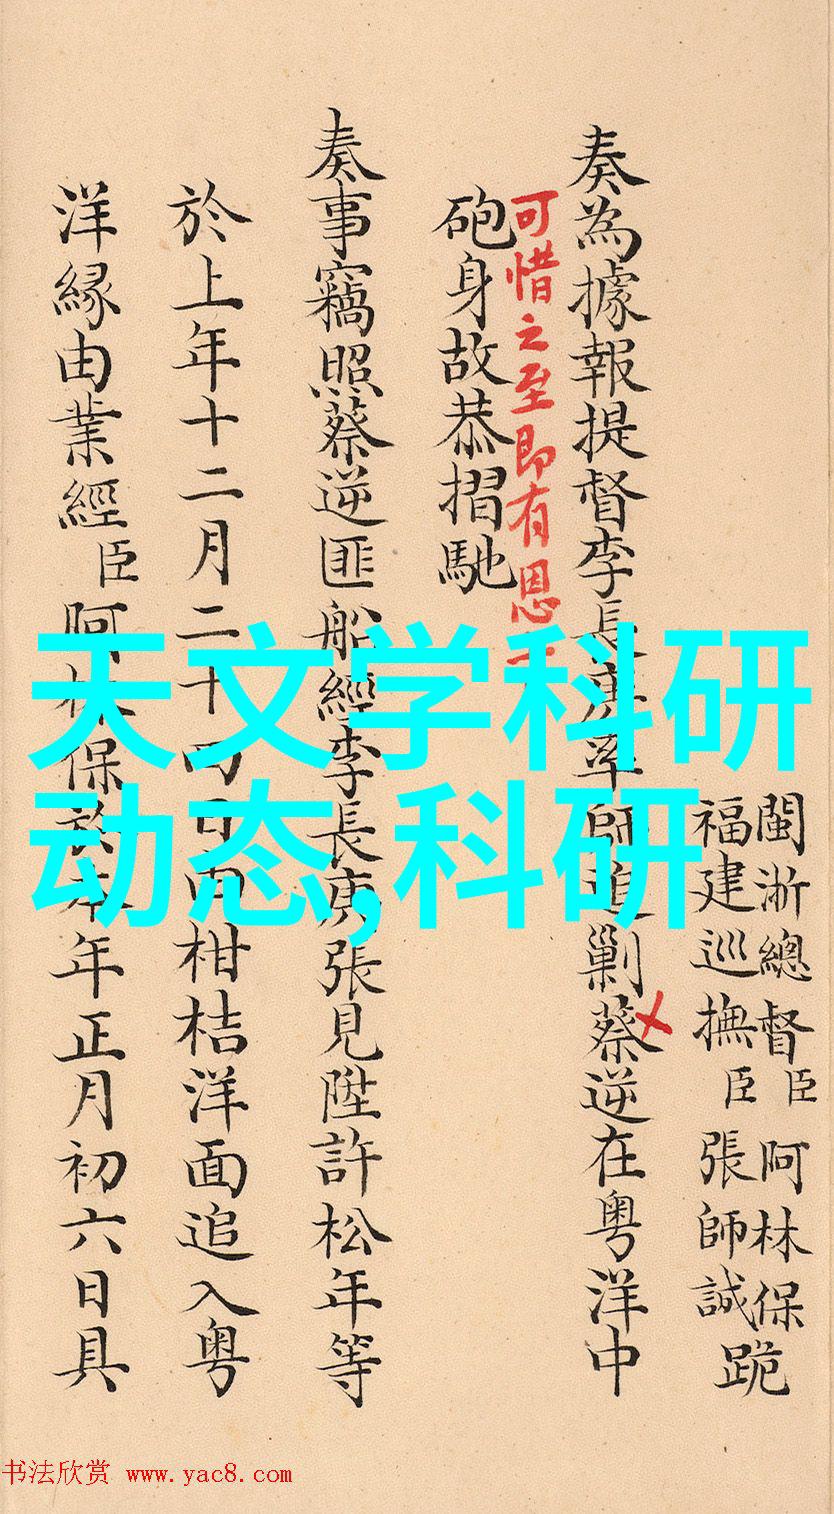 閩浙總督臣阿林保
福建巡撫臣張師誠
跪
奏為據報提督李長庚率師追剿蔡逆在粤洋中
可惜之至即有恩
砲身故恭摺馳
奏事竊照蔡逆匪船經李長庚張見陞許松年等
於上年十二月二十四日由柑桔洋面追入粤
洋緣由業經臣阿林保於本年正月初六日具
天文学科研
动态,科研
书法欣赏 www.yac8.com